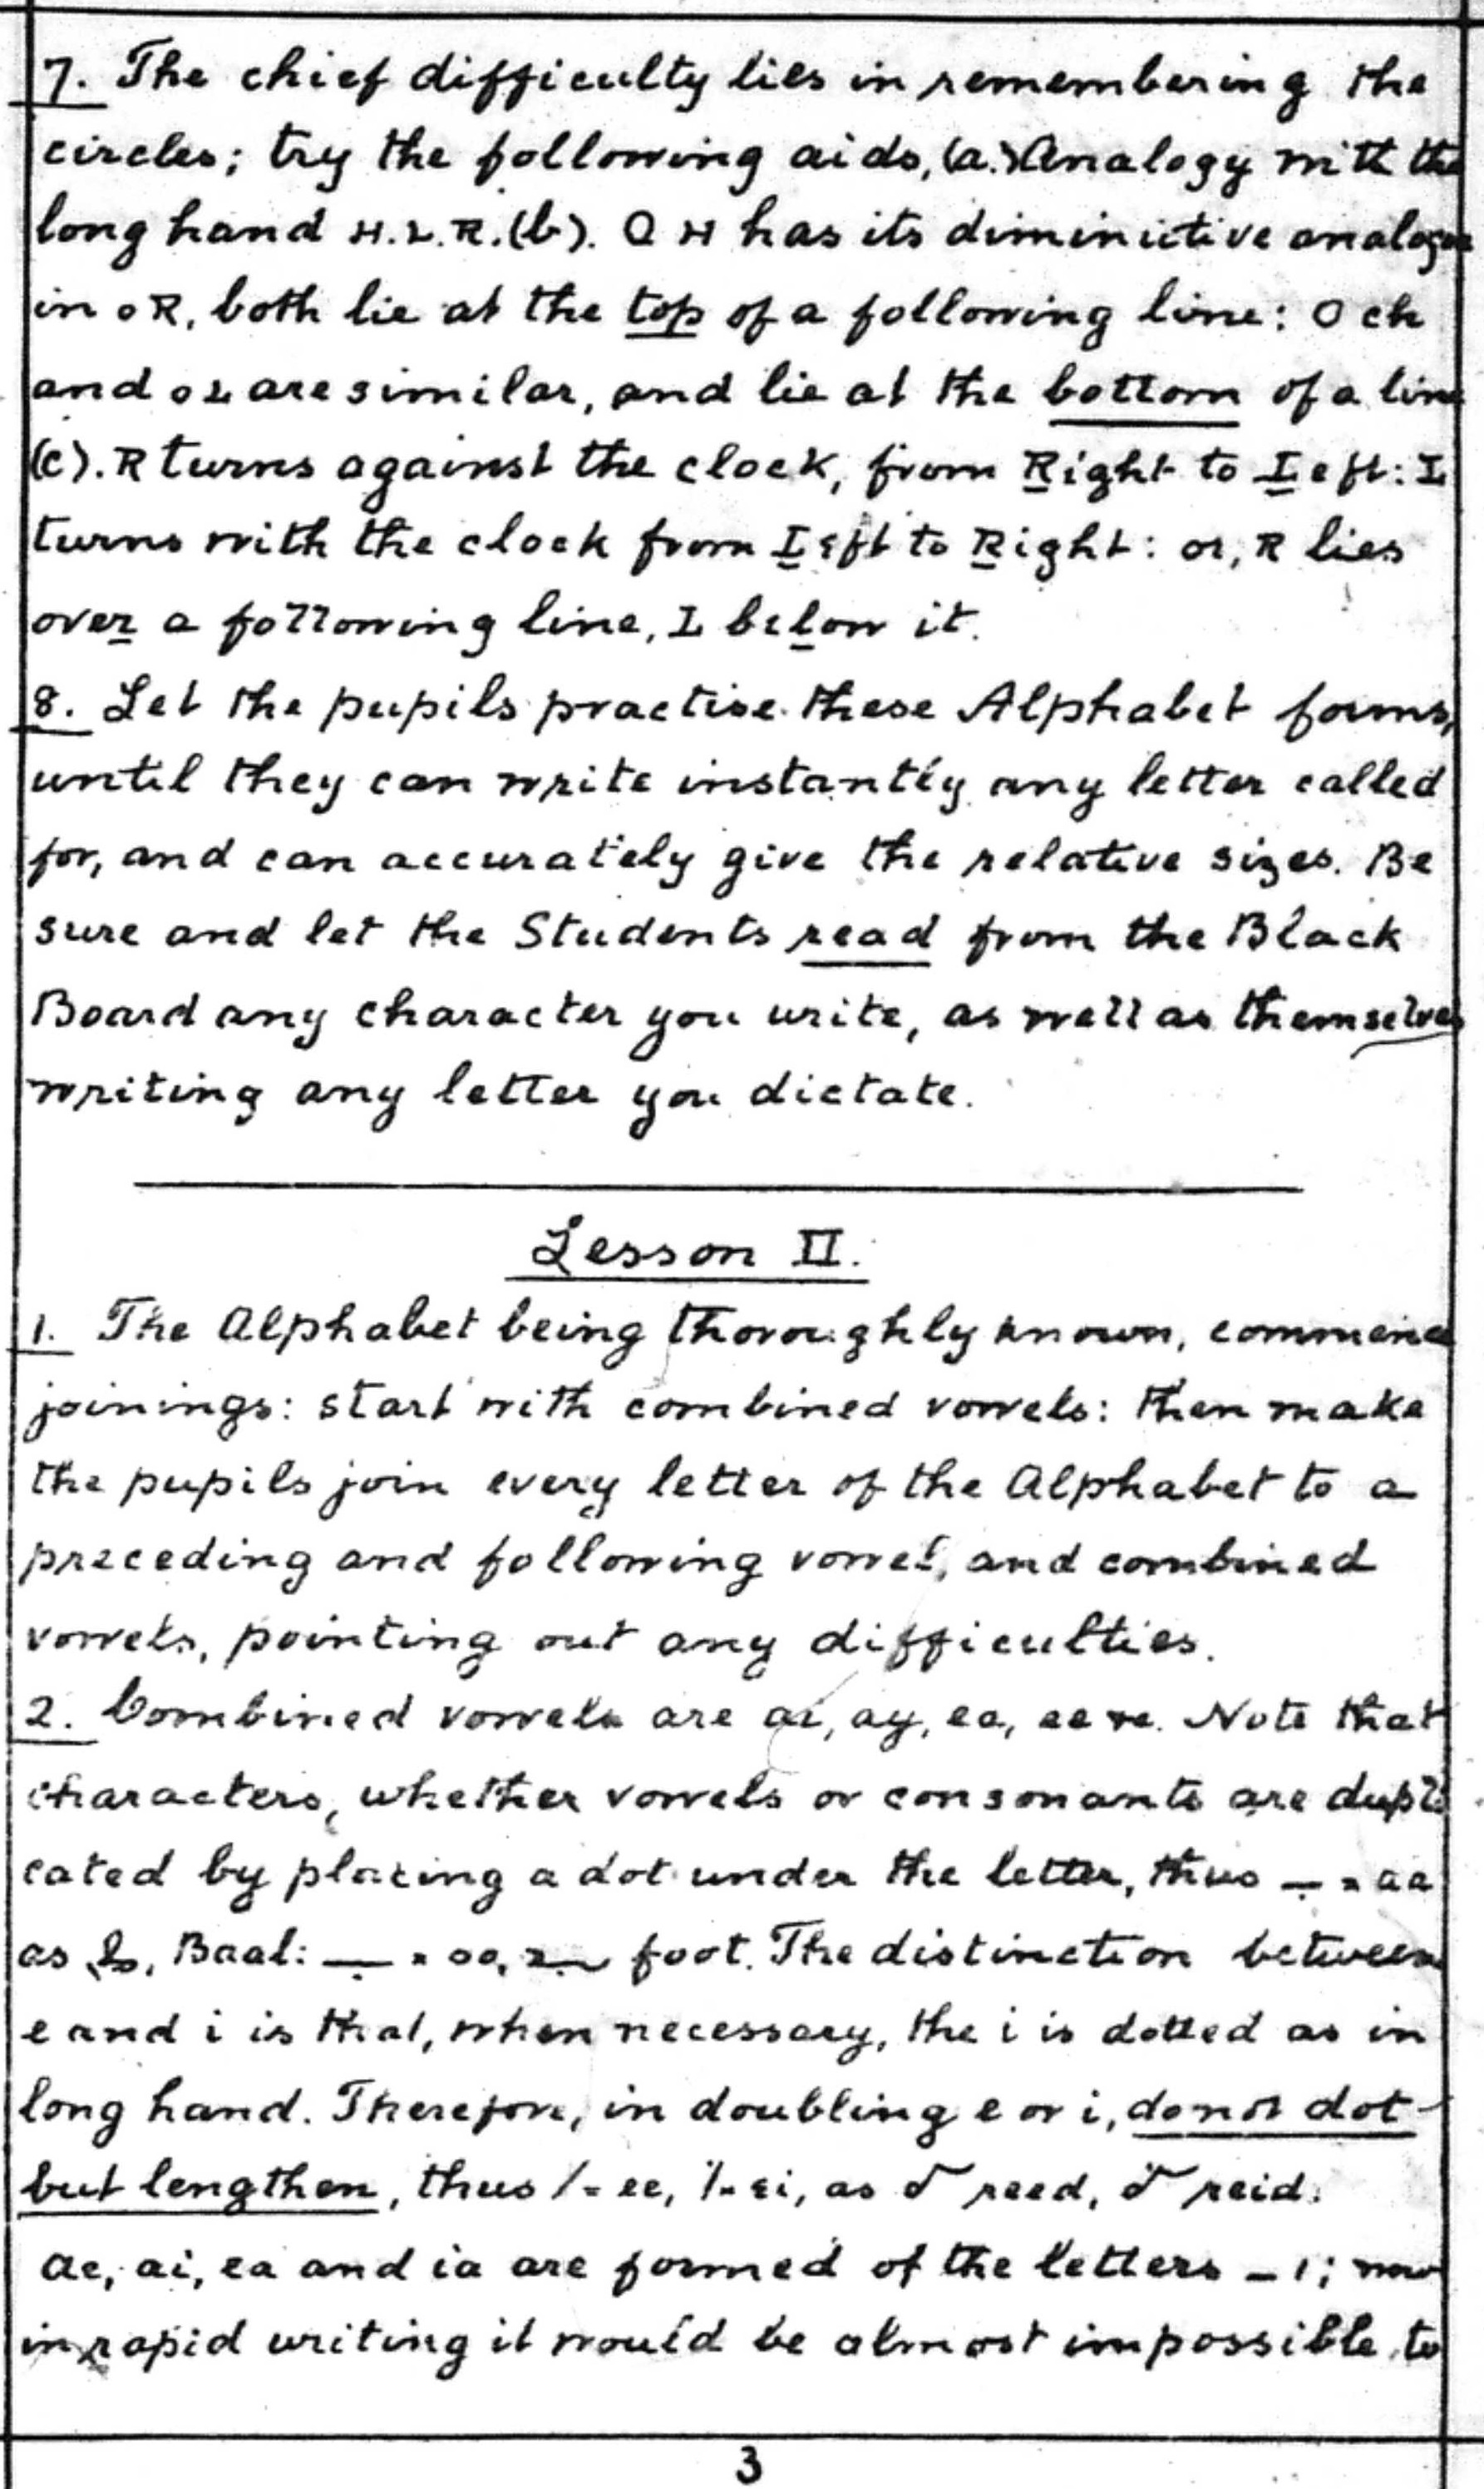 7. The chief difficulty lies in remembering the
circles; try the following aids, (a.) Analogy with the
long hand H. L. R. (b). O H has its diminutive analogue
in o R, both lie at the top of a following line: O ch
and o L are similar, and lie at the bottom of a line
(c). R turns against the clock, from Right to Left: L
turns with the clock from Left to Right: or, R lies
over a following line, L below it.
8. Let the pupils practise these Alphabet forms,
until they can write instantly any letter called
for, and can accurately give the relative sizes. Be
sure and let the Students read from the Black
Board any character you write, as well as themselves
writing any letter you dictate.
Lesson II.
1. The Alphabet being thoroughly known, commence
joinings: start with combined vowels: then make
the pupils join every letter of the Alphabet to a
preceding and following vowel, and combined
vowels, pointing out any difficulties.
2. Combined vowels are ai, ay, ea, ee. Note that
characters, whether vowels or consonants are dupli
cated by placing a dot under the letter, thus = aa
as Baal: = oo, foot. The distinction between
e and i is that, when necessary, the i is dotted as in
long hand. Therefore, in doubling e or i, do not dot
but lengthen, thus / = ee, = ei, as reed, reid.
ae, ai, ea and ia are formed of the letters – ı; now
in rapid writing it would be almost impossible to
3